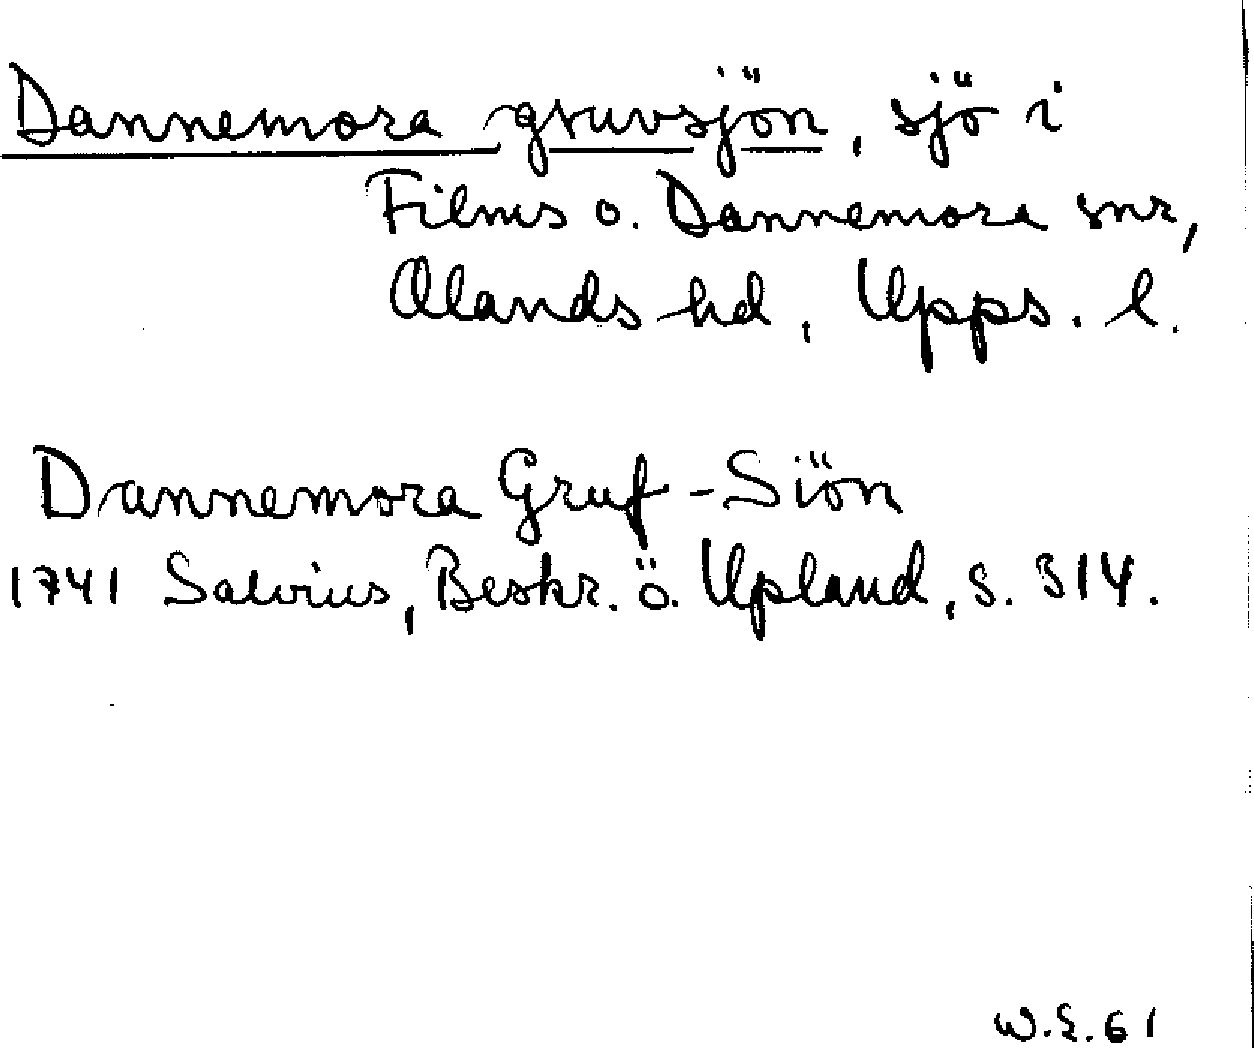 Dannemora gruvsjön, sjö i
Films o. Dannemora snr,
Olands hd, Upps. l.
Dannemora Gruf-Siön
1741 Salvius, Beskr. ö. Upland, s. 314.
W.E.61